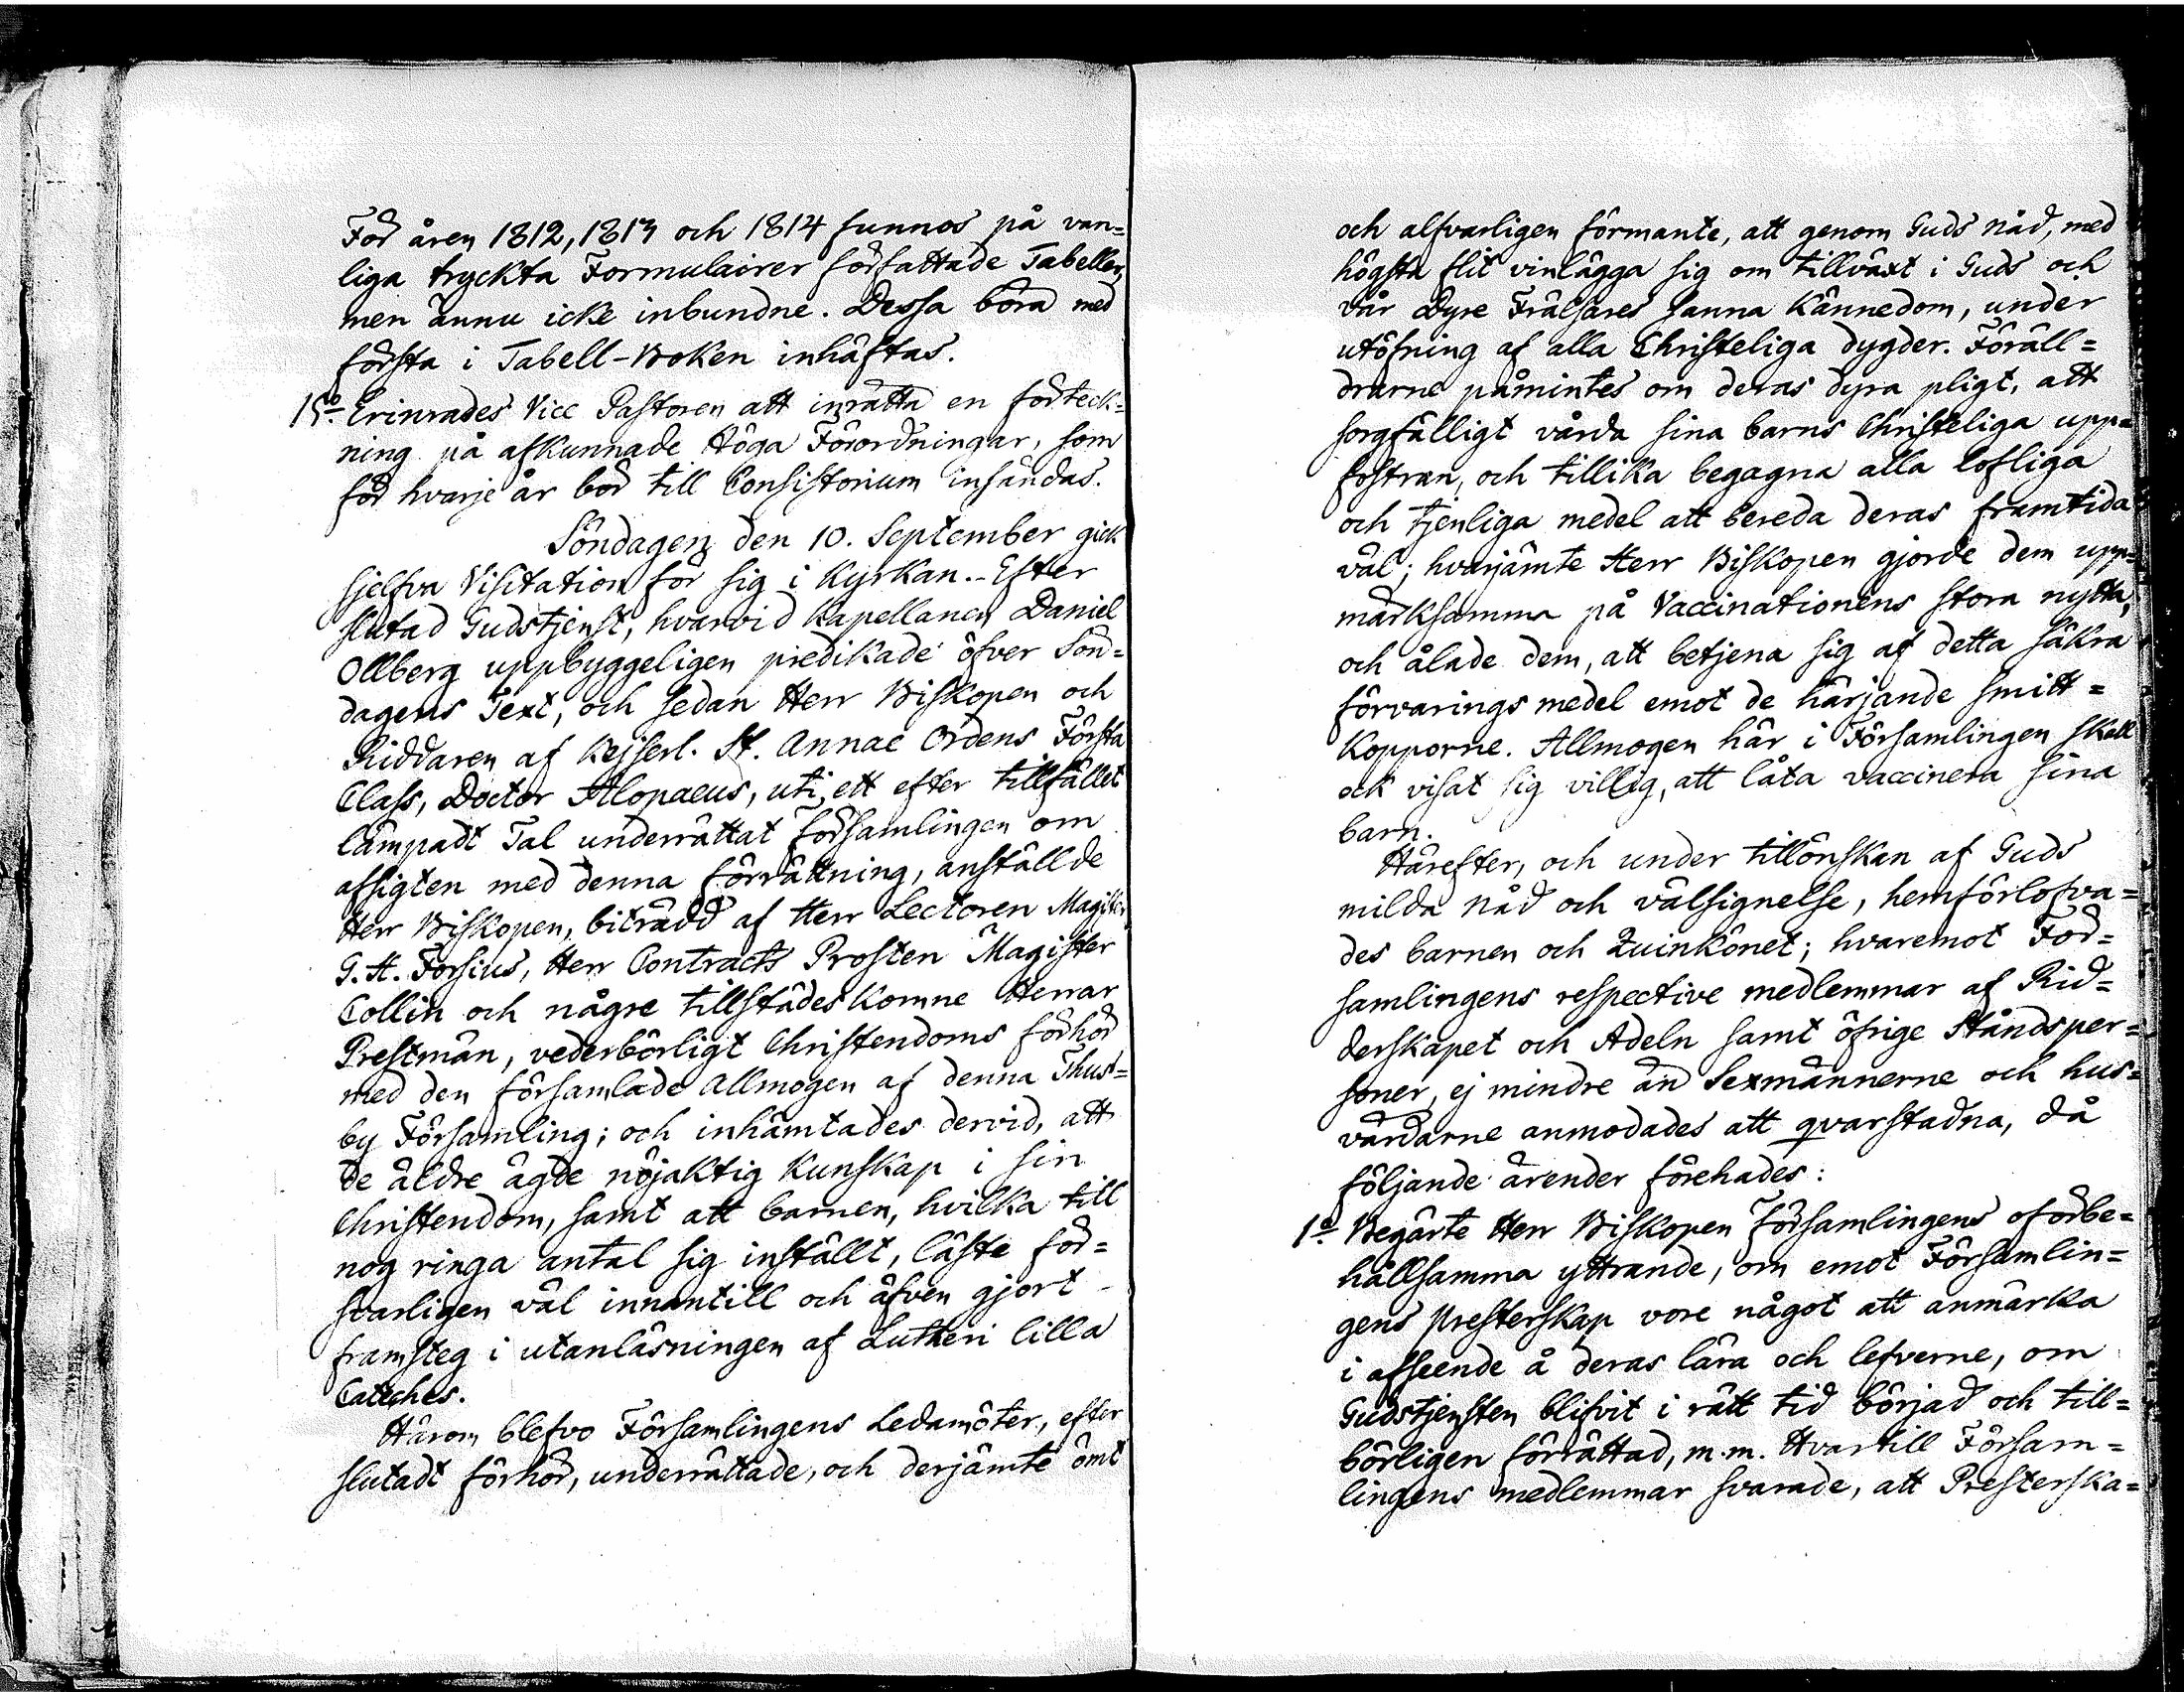 För åren 1812, 1813 och 1814 funnos på van=
liga tryckta Formulairer författade Tabeller,
men ännu icke inbundne. Dessa böra med
första i Tabell-Boken inhäftas.
15º Erinrades Vice Pastoren att inrätta en förteck=
ning på afkunnade Höga Förordningar, som
för hvarje år bör till Consistorium insändas.
Söndagen den 10. September gick
sjelfva Visitation för sig i Kyrkan. - Efter
slutad Gudstjenst, hvarvid Kapellanen Daniel
Ollberg uppbyggeligen predikade öfver Sön=
dagens Text, och sedan Herr Biskopen och
Riddaren af Kejserl. St. Annae Ordens Första
Class, Doctor Alopaeus, uti ett efter tillfället
lämpadt Tal underrättat Församlingen om
afsigten med denna förrättning, anställde
Herr Biskopen, biträdd af Herr Lectoren Magister
G. H. Forsius, Herr Contracts Prosten Magister
Collin och någre tillstädeskomne Herrar
Prestmän, vederbörligt Christendoms förhör
med den församlade Allmogen af denna Thus=
by Församling; och inhämtades dervid, att
de äldre ägde nöjaktig Kunskap i sin
Christendom, samt att barnen, hvilka till
nog ringa antal sig inställt, läste för=
svarligen väl innantill och äfven gjort -
framsteg i utanläsningen af Lutheri lilla
Cateches.
Härom blefvo Församlingens Ledamöter, efter
slutadt förhör, underrättade, och derjämte ömt
och alfvarligen förmante, att genom Guds nåd, med
högsta flit vinlägga sig om tillväxt i Guds och
vår Dyre Frälsares sanna Kännedom, under
utöfning af alla Christeliga dygder. Föräll=
drarne påmintes om deras dyra pligt, att
sorgfälligt vårda sina barns Christeliga upp=
fostran, och tillika begagna alla lofliga
och tjenliga medel att bereda deras framtida
väl; hvarjämte Herr Biskopen gjorde dem upp=
märksamma på Vaccinationens stora nytta,
och ålade dem, att betjena sig af detta säkra
förvarings medel emot de härjande smitt=
Kopporne. Allmogen här i Församlingen skall
ock visat sig villig, att låta vaccinera sina
barn.
Härefter, och under tillönskan af Guds
milda Nåd och välsignelse, hemförlofva=
des barnen och Quinkönet; hvaremot För=
samlingens respective medlemmar af Rid=
derskapet och Adeln samt öfrige Ståndsper=
soner, ej mindre än Sexmännerne och hus=
värdarne anmodades att qvarstadna, då
följande ärender förehades:
1º Begärte Herr Biskopen Församlingens oförbe=
hållsamma yttrande, om emot Församlin=
gens Presterskap vore något att anmärka
i afseende å deras lära och lefverne, om
Gudstjensten blifvit i rätt tid börjad och till=
börligen förrättad, m.m. Hvartill Försam=
lingens medlemmar svarade, att Presterska=